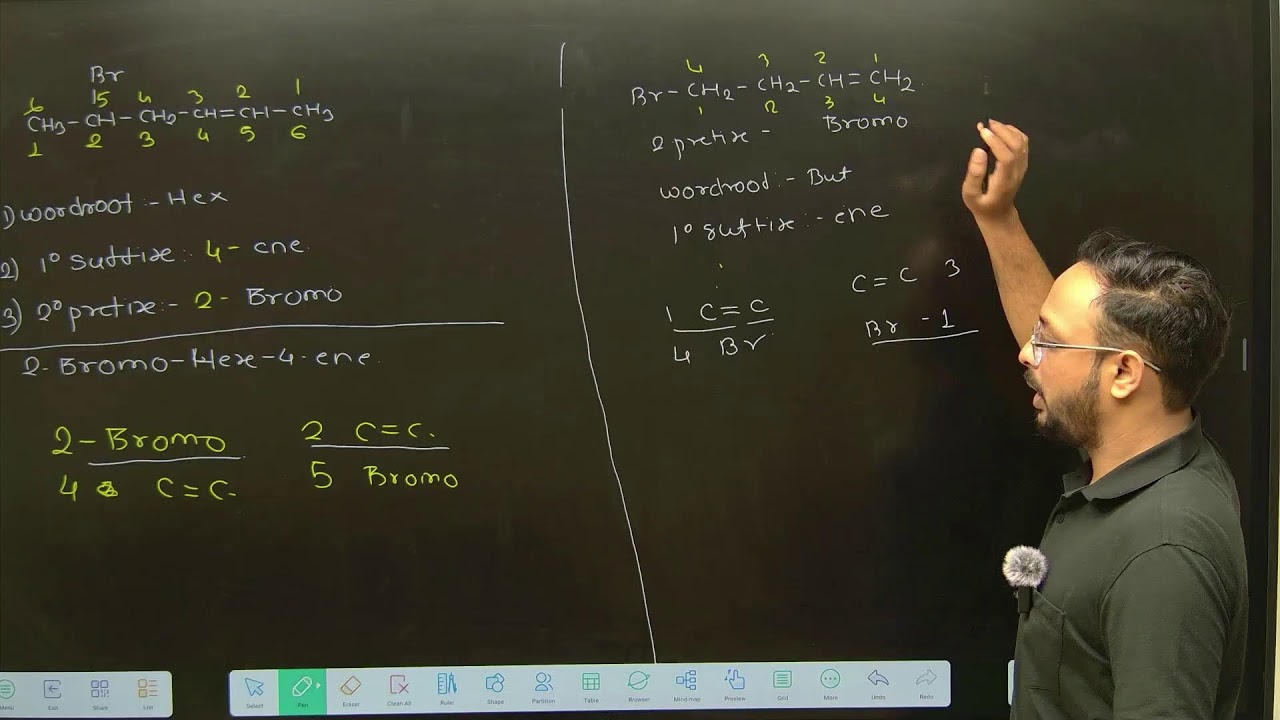 Br
6 5 4 3 2 1
CH3 - CH - CH2 - CH = CH - CH3
1 2 3 4 5 6
1) wordroot :- Hex
2) 1° suffixe :- 4- ene.
3) 2° prefixe :- 2- Bromo
2-Bromo-Hexe-4-ene.
2-Bromo
4 C=C.
2 C=C.
5 Bromo
4 3 2 1
Br - CH2 - CH2 - CH = CH2.
1 2 3 4
2 prefixe - Bromo
wordrood :- But
1° suffixe :- ene
1 C=C
4 Br
C=C 3
Br - 1
Menu
Exit
Share
List
Select
Pen
Eraser
Clean All
Ruler
Shape
Partition
Table
Browser
Mind map
Preview
Grid
More
Undo
Redo